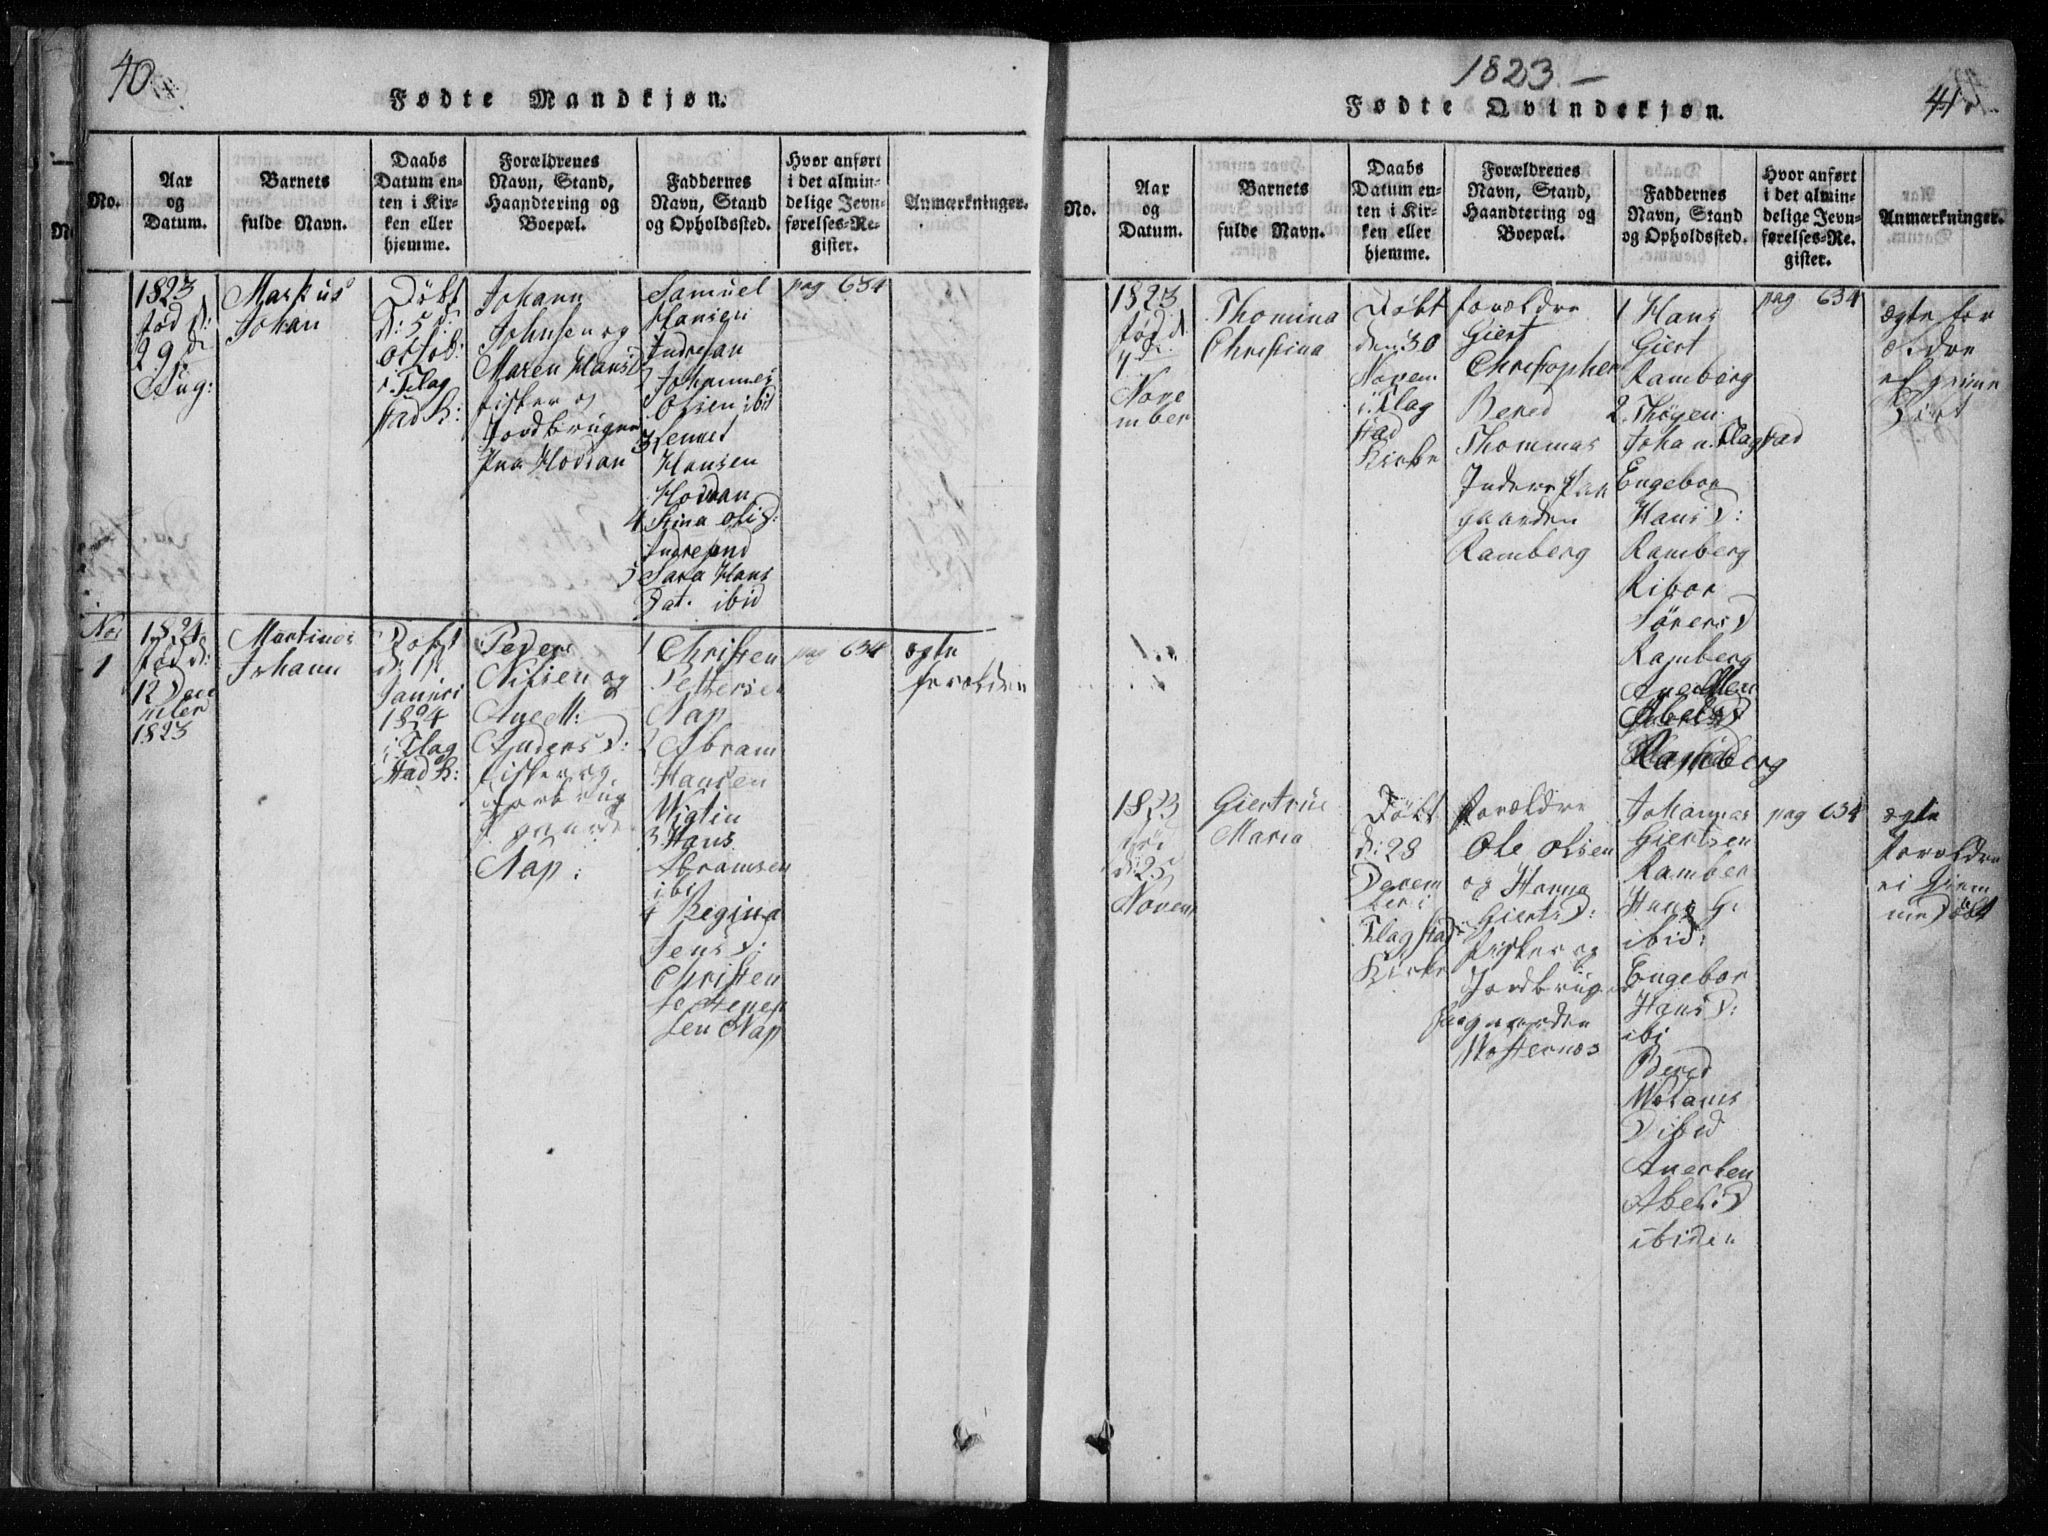 40
Fødte Mandkjøn.
No.
Aar
og
Datum.
Barnets
fulde Navn.
Daabs
Datum en-
ten i Kir-
ken eller
hjemme.
Forældrenes
Navn, Stand,
Haandtering og
Boepæl.
Faddernes
Navn, Stand
og Opholdssted.
Hvor anført
i det almin-
delige Jevn-
førelses-Re-
gister.
Anmærkninger.
1823
fød d:
29 d:
Aug:
Markus
Johan
Døbt
d: 5 d:
octob:
i Flag
stad K:
Johann
Johnsen og
Maren Hansd
fisker og
Jordbruger
Hovdan
Samuel
Hansen
Indresan
2 Johannes
Olsen ibid
3
Hansen
Hovdan
4 Stina Olsd:
Indresand
5 Sara Hans
Dat. ibid
pag 634
No
1
1824
fød d:
12 Decem
ber
1823
Martinus
Johann
Døbt
d: 1
Januari
1824
i Flag
stad K:
Peder
Nilsen og
Ane M:
Anders D:
fisker og
Jorbrug
gaarde
Nap:
1 Christen
Pettersen
Nap
2 Abram
Hansen
Wigtin
3 Hans
Abramsen
ibi
4 Regina
Jens D:
Christen
Pettersen
sen Nap
pag 634
ægte
forælder
1823
41
Fødte Qvindekjøn.
No.
Aar
og
Datum.
Barnets
fulde Navn.
Daabs
Datum en-
ten i Kir-
ken eller
hjemme.
Forældrenes
Navn, Stand,
Haandtering og
Boepæl.
Faddernes
Navn, Stand
og Opholdssted.
Hvor anført
i det almin-
delige Jevn-
førelses-Re-
gister.
Anmærkninger.
1823
fød d
7 d:
Nove
mber
Thomina
Christina
Døbt
den 30
Novem
i Flag
stad
Kirke
forældre
Giert
Christopher
Bered
Thommas
gaarden
Ramberg
1 Hans
Giert
Ramberg
2
Joha n. Flagstad
Engebor
Hans D:
Ramberg
Ribor
Sørens D
Ramberg
Abels D
Ramberg
pag 634
ægte for
ældre
1823
d: 25
Novem
Giertrue
Maria
Døbt
d: 28
Decem
ber i
Flagstad
Kirke
forældre
Ole Olsen
og Hanna
Gierts D:
fisker og
Jordbruger
paa gaarden
Mosternes
Johannes
Giertsen
Ramber
Hans G:
ibid:
Engebor
Hans D:
ibi
Bered
D ibid
Anerken
Abels D
ibiden
pag 634
ægte
Forældre
ei hjem
me Døbt